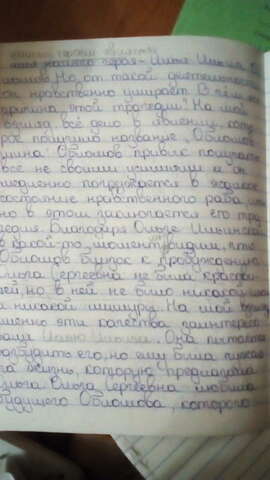 нашего героя - Ильи Ильича О
ломов. Но, от такой деятельности
он нравственно умирает. В чём же
причина этой трагедии? На мой
взгляд, всё дело в явлении, кото
рое получило название "Обломов
щина". Обломов привык получать
всё не своими усилиями и он
медленно погружается в
состояние нравственного раба, имен
но в этом заключается его тра
гедия. Благодаря Ольге Ильинской
в какой-то момент видим, что
Обломов близок к пробуждению
Ольга Сергеевна не была красави
цей, но в ней не было никакой
и никакой мишуры. На мой взгляд
именно эти качества заинтересо
вали Илью Ильича. Она пыталась
разбудить его, но ему была чужда
та жизнь, которую предлагала
Ольга. Ольга Сергеевна любила
будущего Обломова, которого